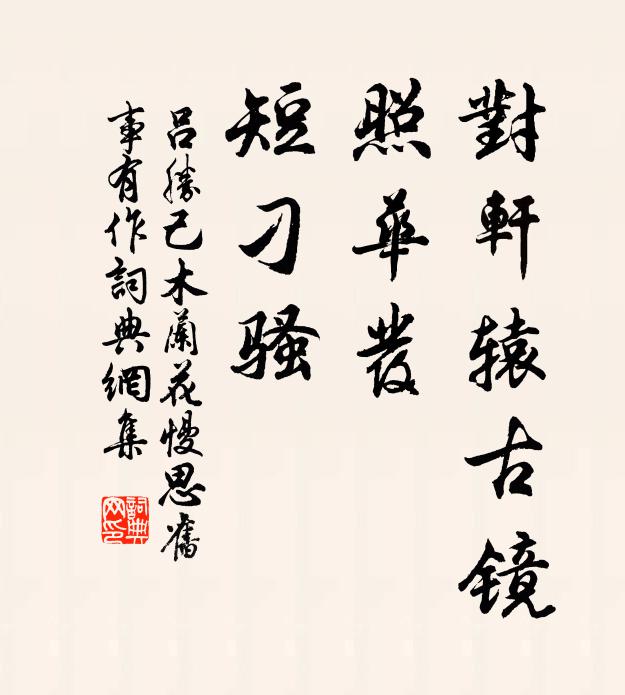 對軒辕古镜
照華發
短刁骚
呂勝己木蘭花慢思舊
事有作詞典網集
詞典
网印